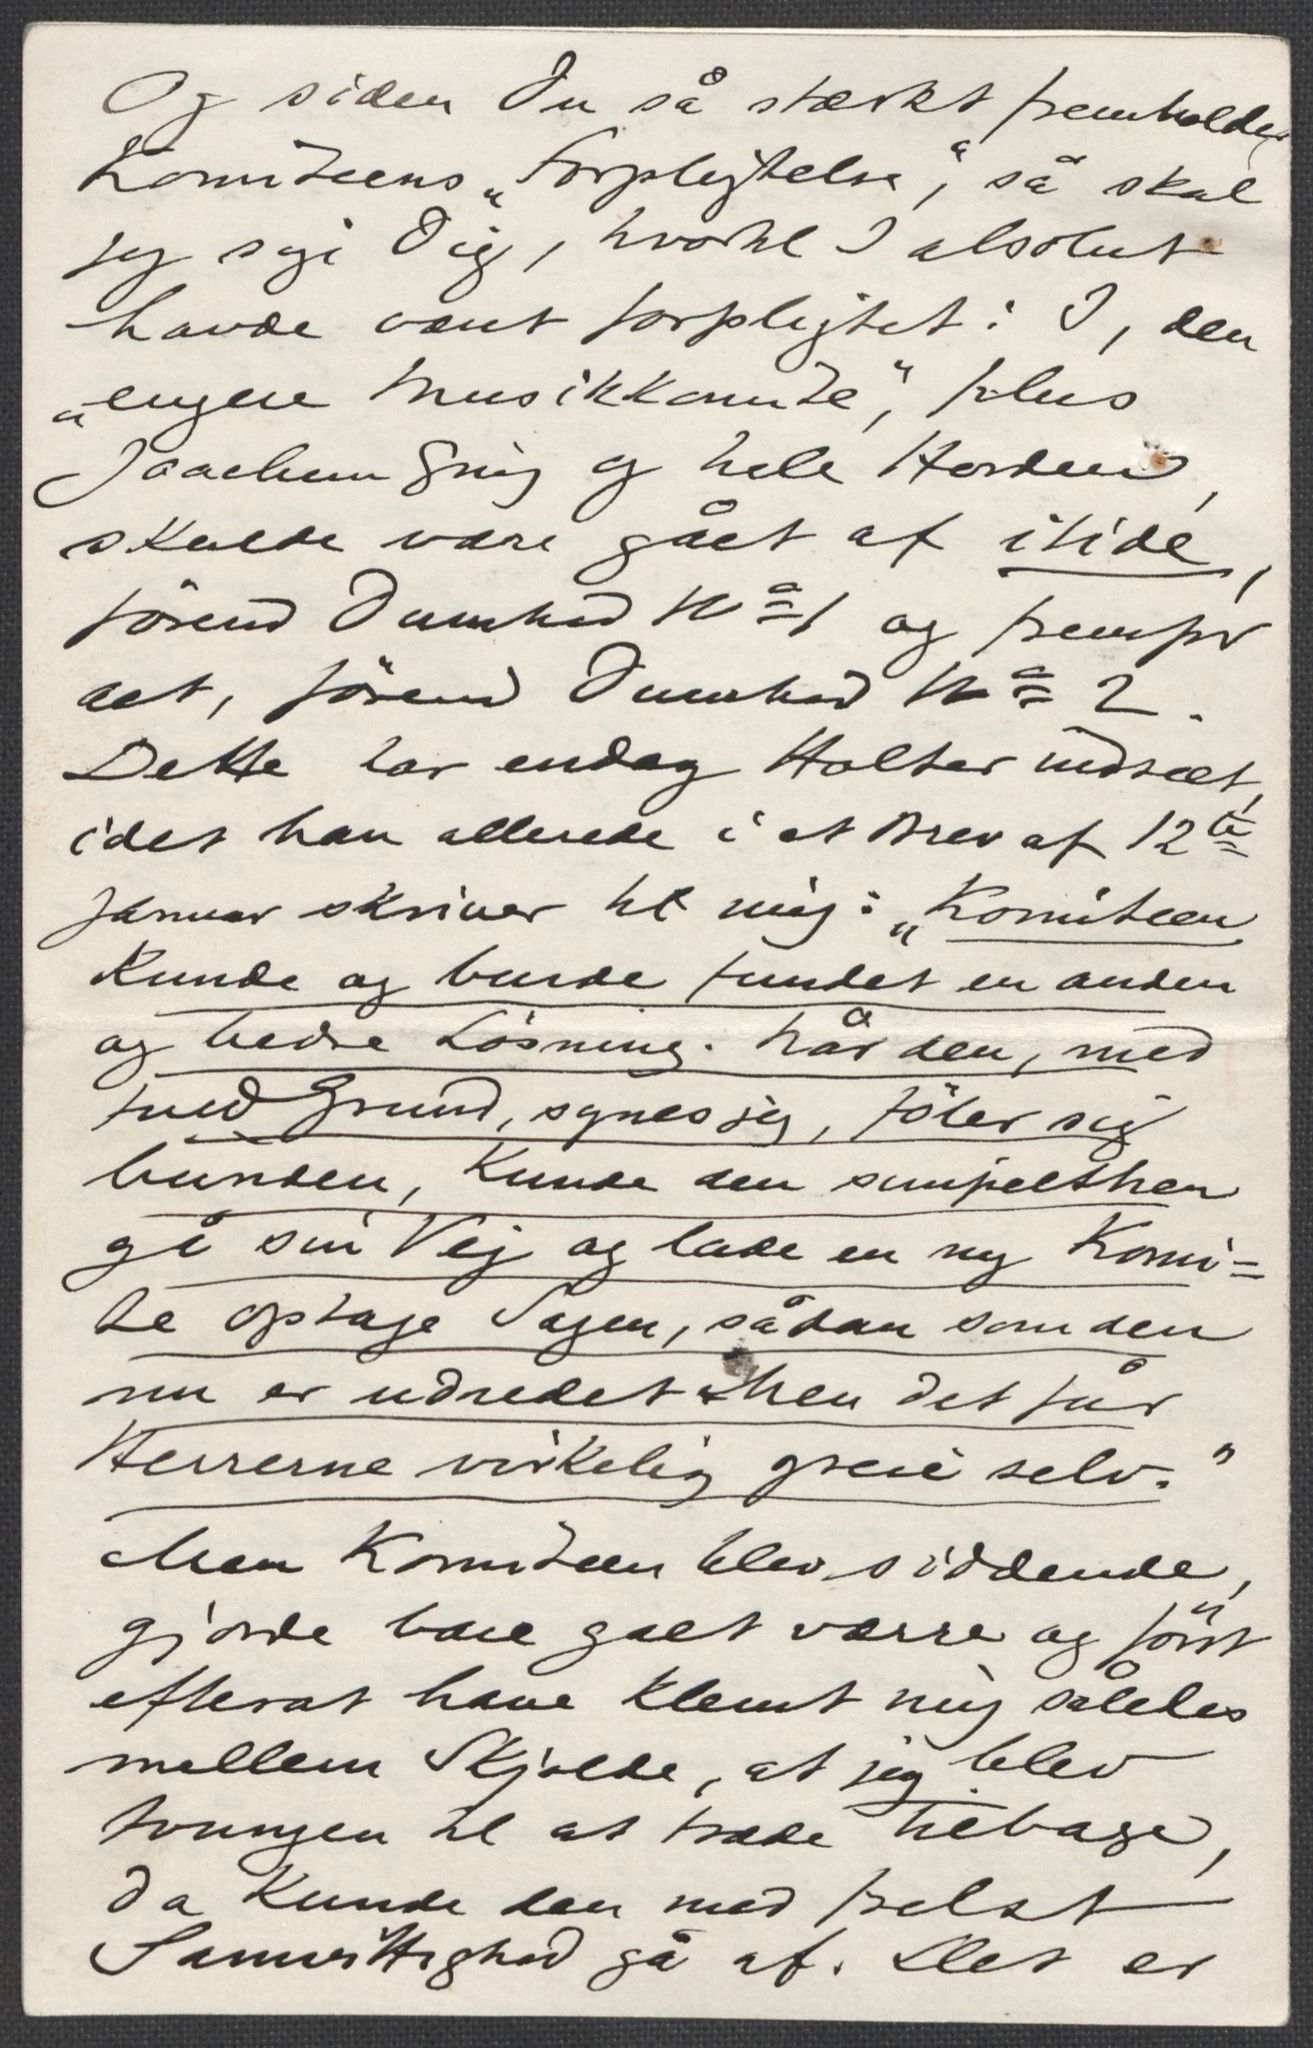 Og siden Du så stærkt fremholder
Komiteens „Forpligtelse", så skal
jeg sige Dig, hvortil I absolut
havde været forpligtet: I, den
„engere Musikkomite", plus
Joachim Grieg og hele Horden,
skulde være gået af itide,
förend Dumhed No 1 og fremfor
alt, förend Dumhed No 2.
Dette har endog Holter indseet,
idet han allerede i et Brev af 12te
Januar skriver til mig: „Komiteen
kunde og burde fundet en anden
og bedre Lösning. Når den, med
fuld Grund, synes jeg, föler sig
bunden, kunde den simpelthen
gå sin Vej og lade en ny Komi=
te optage Sagen, sådan som den
nu er udredet. Men det får
Herrerne virkelig greie selv."
Men Komiteen blev siddende,
gjorde bare galt værre og först
efterat have klemt mig således
mellem Skjolde, at jeg blev
tvungen til at træde tilbage,
da kunde den med frelst
Samvittighed gå af. Det er